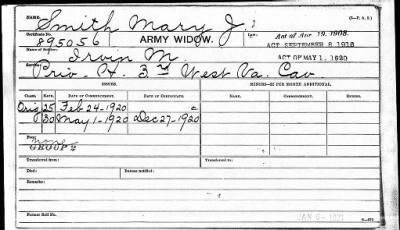 Smith Mary J. (3-F. A. S.)
895056 ARMY WIDOW. Law: Act of Apr 19, 1908.
ACT SEPTEMBER 8, 1916
Irvin M. ACT OF MAY 1, 1920
Service: Priv. 3rd West Va. Cav
ISSUES. MINORS—$2 PER MONTH ADDITIONAL.
CLASS. RATE. DATE OF COMMENCEMENT. DATE OF CERTIFICATE.
Orig 25 Feb 24-1920
30 May 1-1920 Dec 27-1920
none
GROUP 2
Transferred from: Transferred to:
Died: Bureau notified:
Remarks:
Former Roll No.
JAN 6-1921